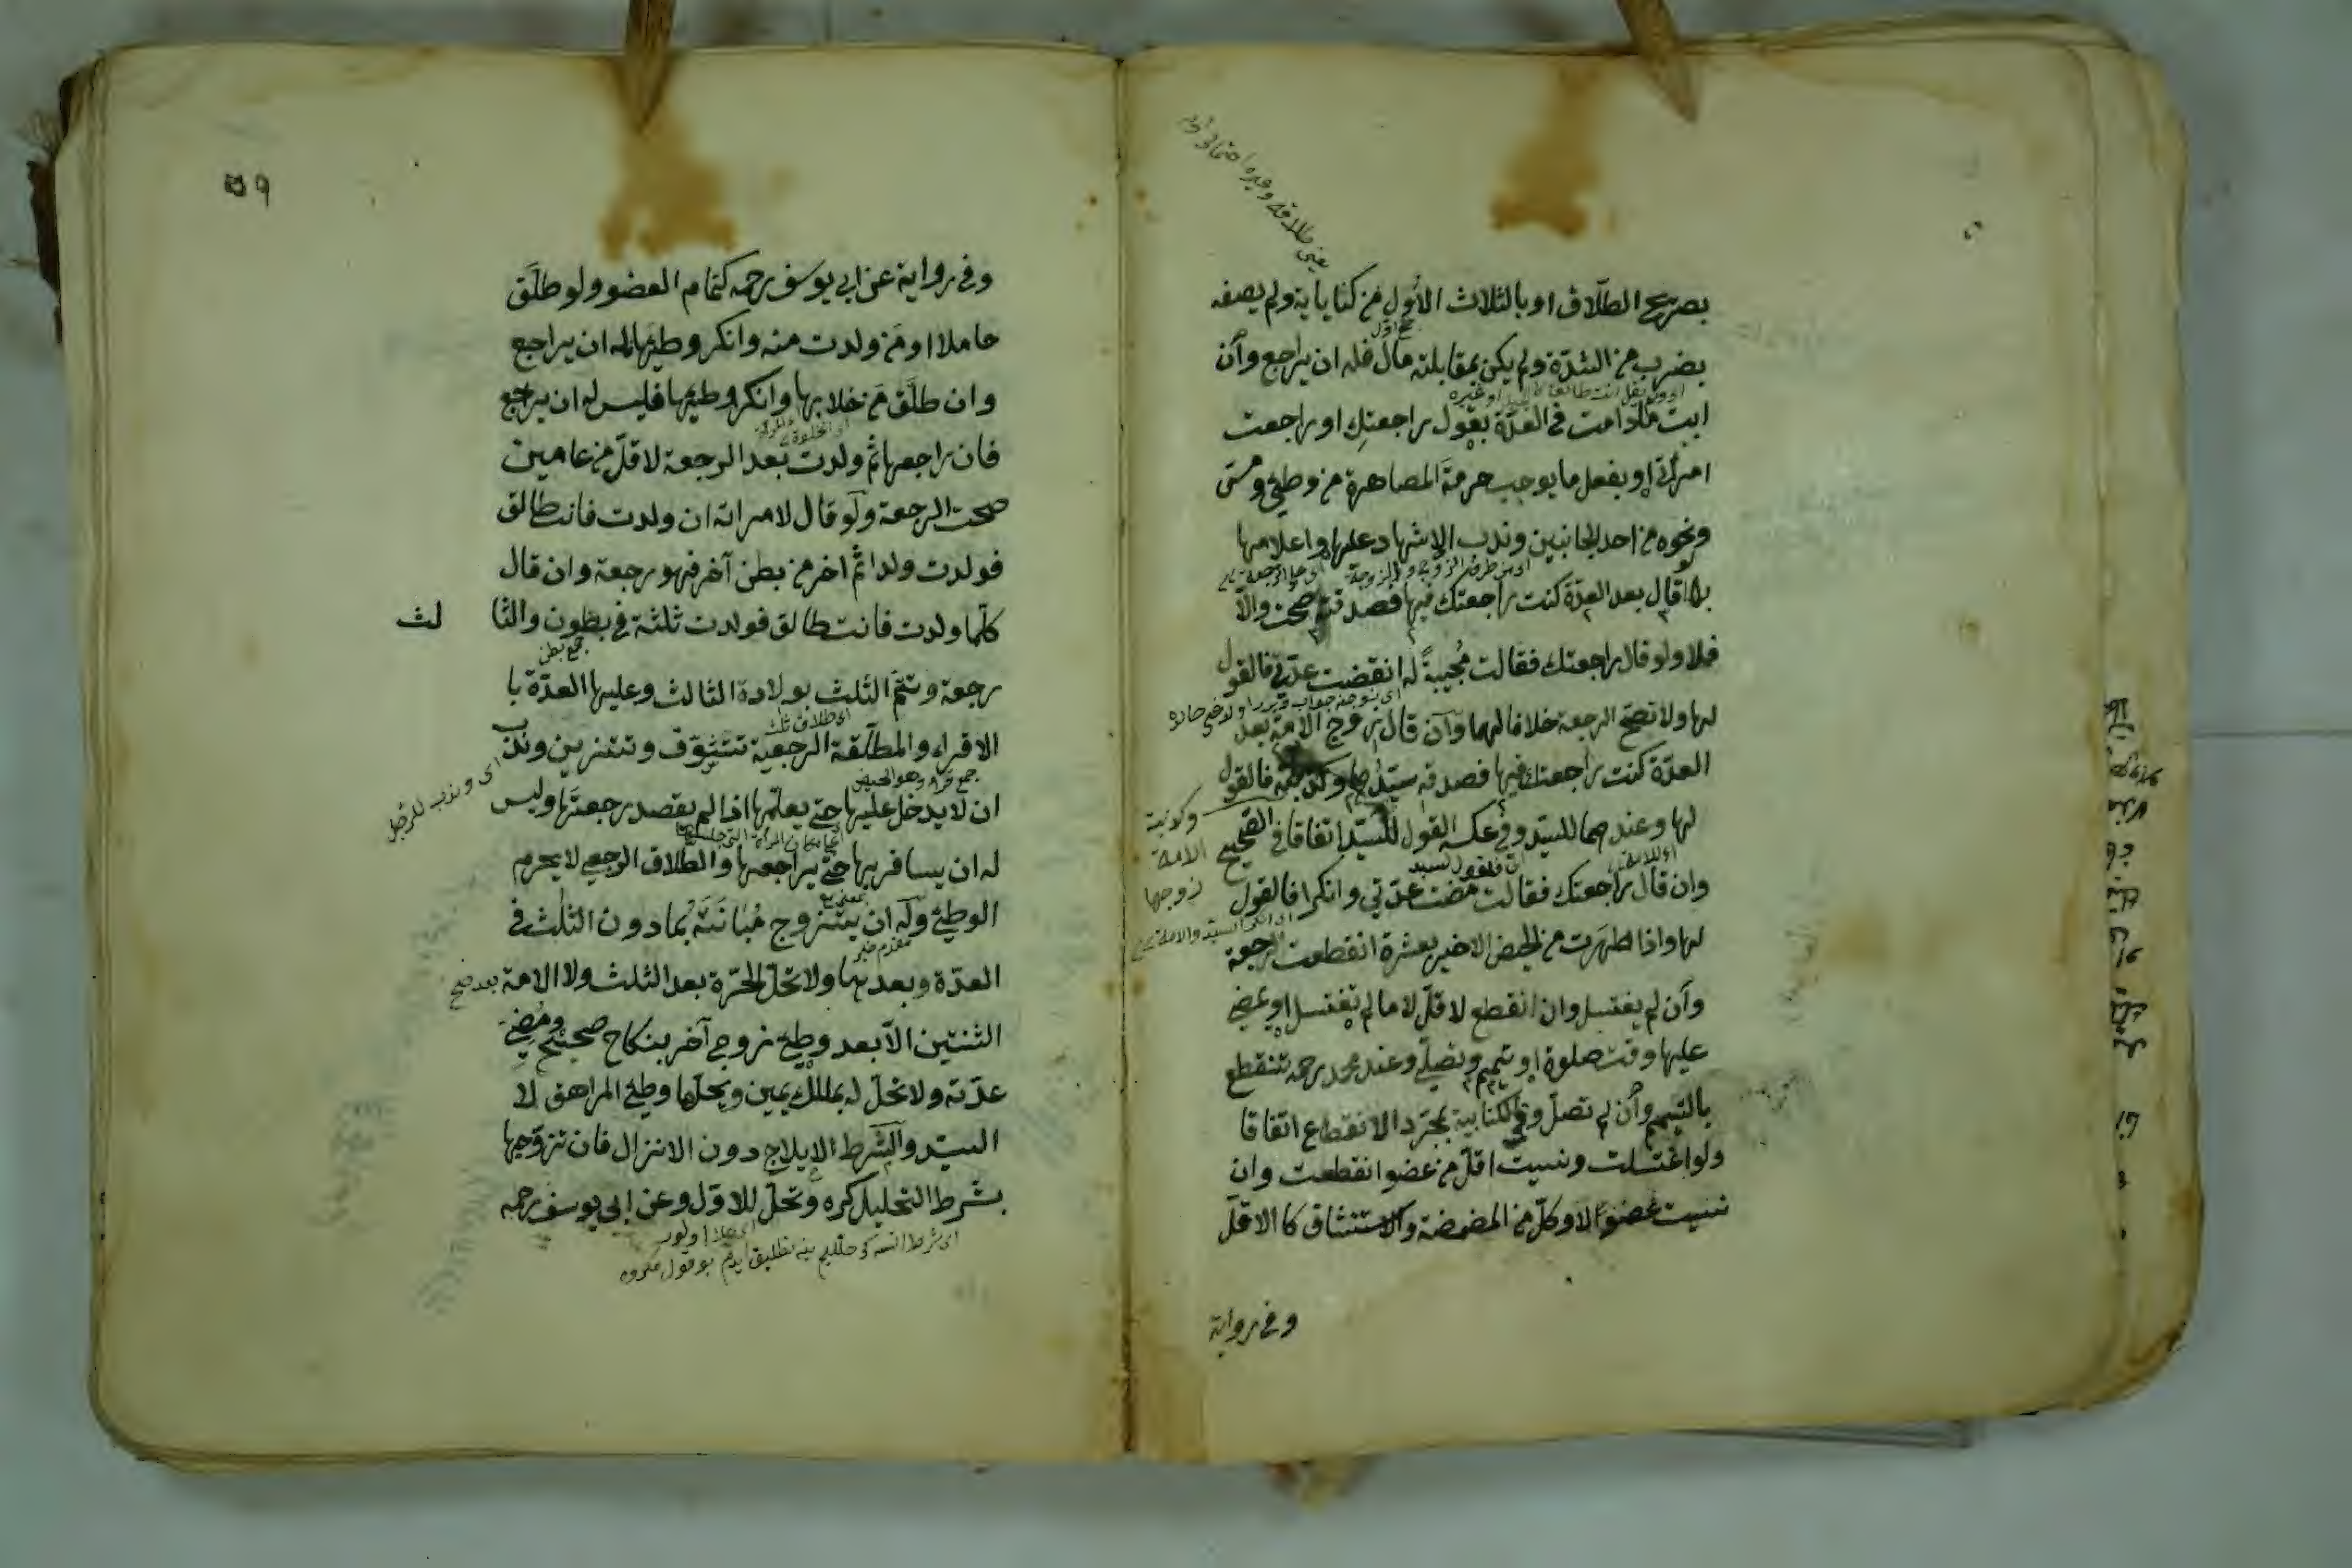 بصريح الطلاق او بالثلاث الأول من كناياته ولم يصفه
بضرب من الشدة ولم يكن بمقابلته مال فله ان يراجع وان
ابت مادامت في العدة بقول راجعتك او راجعت
امرأتي او بفعل ما يوجب حرمة المصاهرة من وطئ ومس
ونحوه من احد الجانبين وندب الاشهاد عليها واعلامها
بها قال بعد العدة كنت راجعتك فيها فصدقته صحت والا
فلا ولو قال راجعتك فقالت مجيبة له انقضت عدتي فالقول
لها ولا تصح الرجعة خلافا لهما وان قال زوج الامة بعد
العدة كنت راجعتك فيها فصدقه سيدها وكذبته فالقول
لها وعندهما للسيد وفي عكسه القول للسيد اتفاقا في الصحيح
وان قال راجعتك فقالت مضت عدتي وانكرا فالقول
لها واذا طهرت من الحيض الاخير بعشرة انقطعت الرجعة
وان لم يغتسل وان انقطع لاقل لا ما لم تغتسل او يمضي
عليها وقت صلوة او تيمم وتصلي وعند محمد رحمه تنقطع
بالتيمم وان لم تصل وفي الكتابية بمجرد الانقطاع اتفاقا
ولو اغتسلت ونسيت اقل من عضو انقطعت وان
نسيت عضوا لا وكل من المضمضة والاستنشاق كالاقل
وكذبت
الامة
زوجها
وفي رواية
٥٩
وفي رواية عن ابي يوسف رحمه كتمام العضو ولو طلق
حاملا او من ولدت منه وانكر وطيها له ان يراجع
وان طلق من خلا بها وانكر وطيها فليس له ان يراجع
فان راجعها ثم ولدت بعد الرجعة لاقل من عامين
صحت الرجعة ولو قال لامراته ان ولدت فانت طالق
فولدت ولدا ثم اخر من بطن آخر فهو رجعة وان قال
كلما ولدت فانت طالق فولدت ثلثة في بطون والثا لث
جمع بطن
رجعة وتتم الثلث بولادة الثالث وعليها العدة با
الاقراء والمطلقة الرجعية تتشوف وتتزين وندب
جمع قرء وهو الحيض
اى وندب للرجل
ان لا يدخل عليها حتى يعلمها اذا لم يقصد رجعتها وليس
له ان يسافر بها حتى يراجعها والطلاق الرجعي لا يحرم
الوطئ وله ان يتزوج مبانته بما دون الثلث في
العدة وبعدها ولا تحل الحرة بعد الثلث ولا الامة بعد
الثنتين الا بعد وطئ زوج آخر بنكاح صحيح ومضي
عدته ولا تحل له بملك يمين ويحلها وطئ المراهق لا
السيد والشرط الايلاج دون الانزال فان تزوجها
بشرط التحليل كره وتحل للاول وعن ابي يوسف رحمه